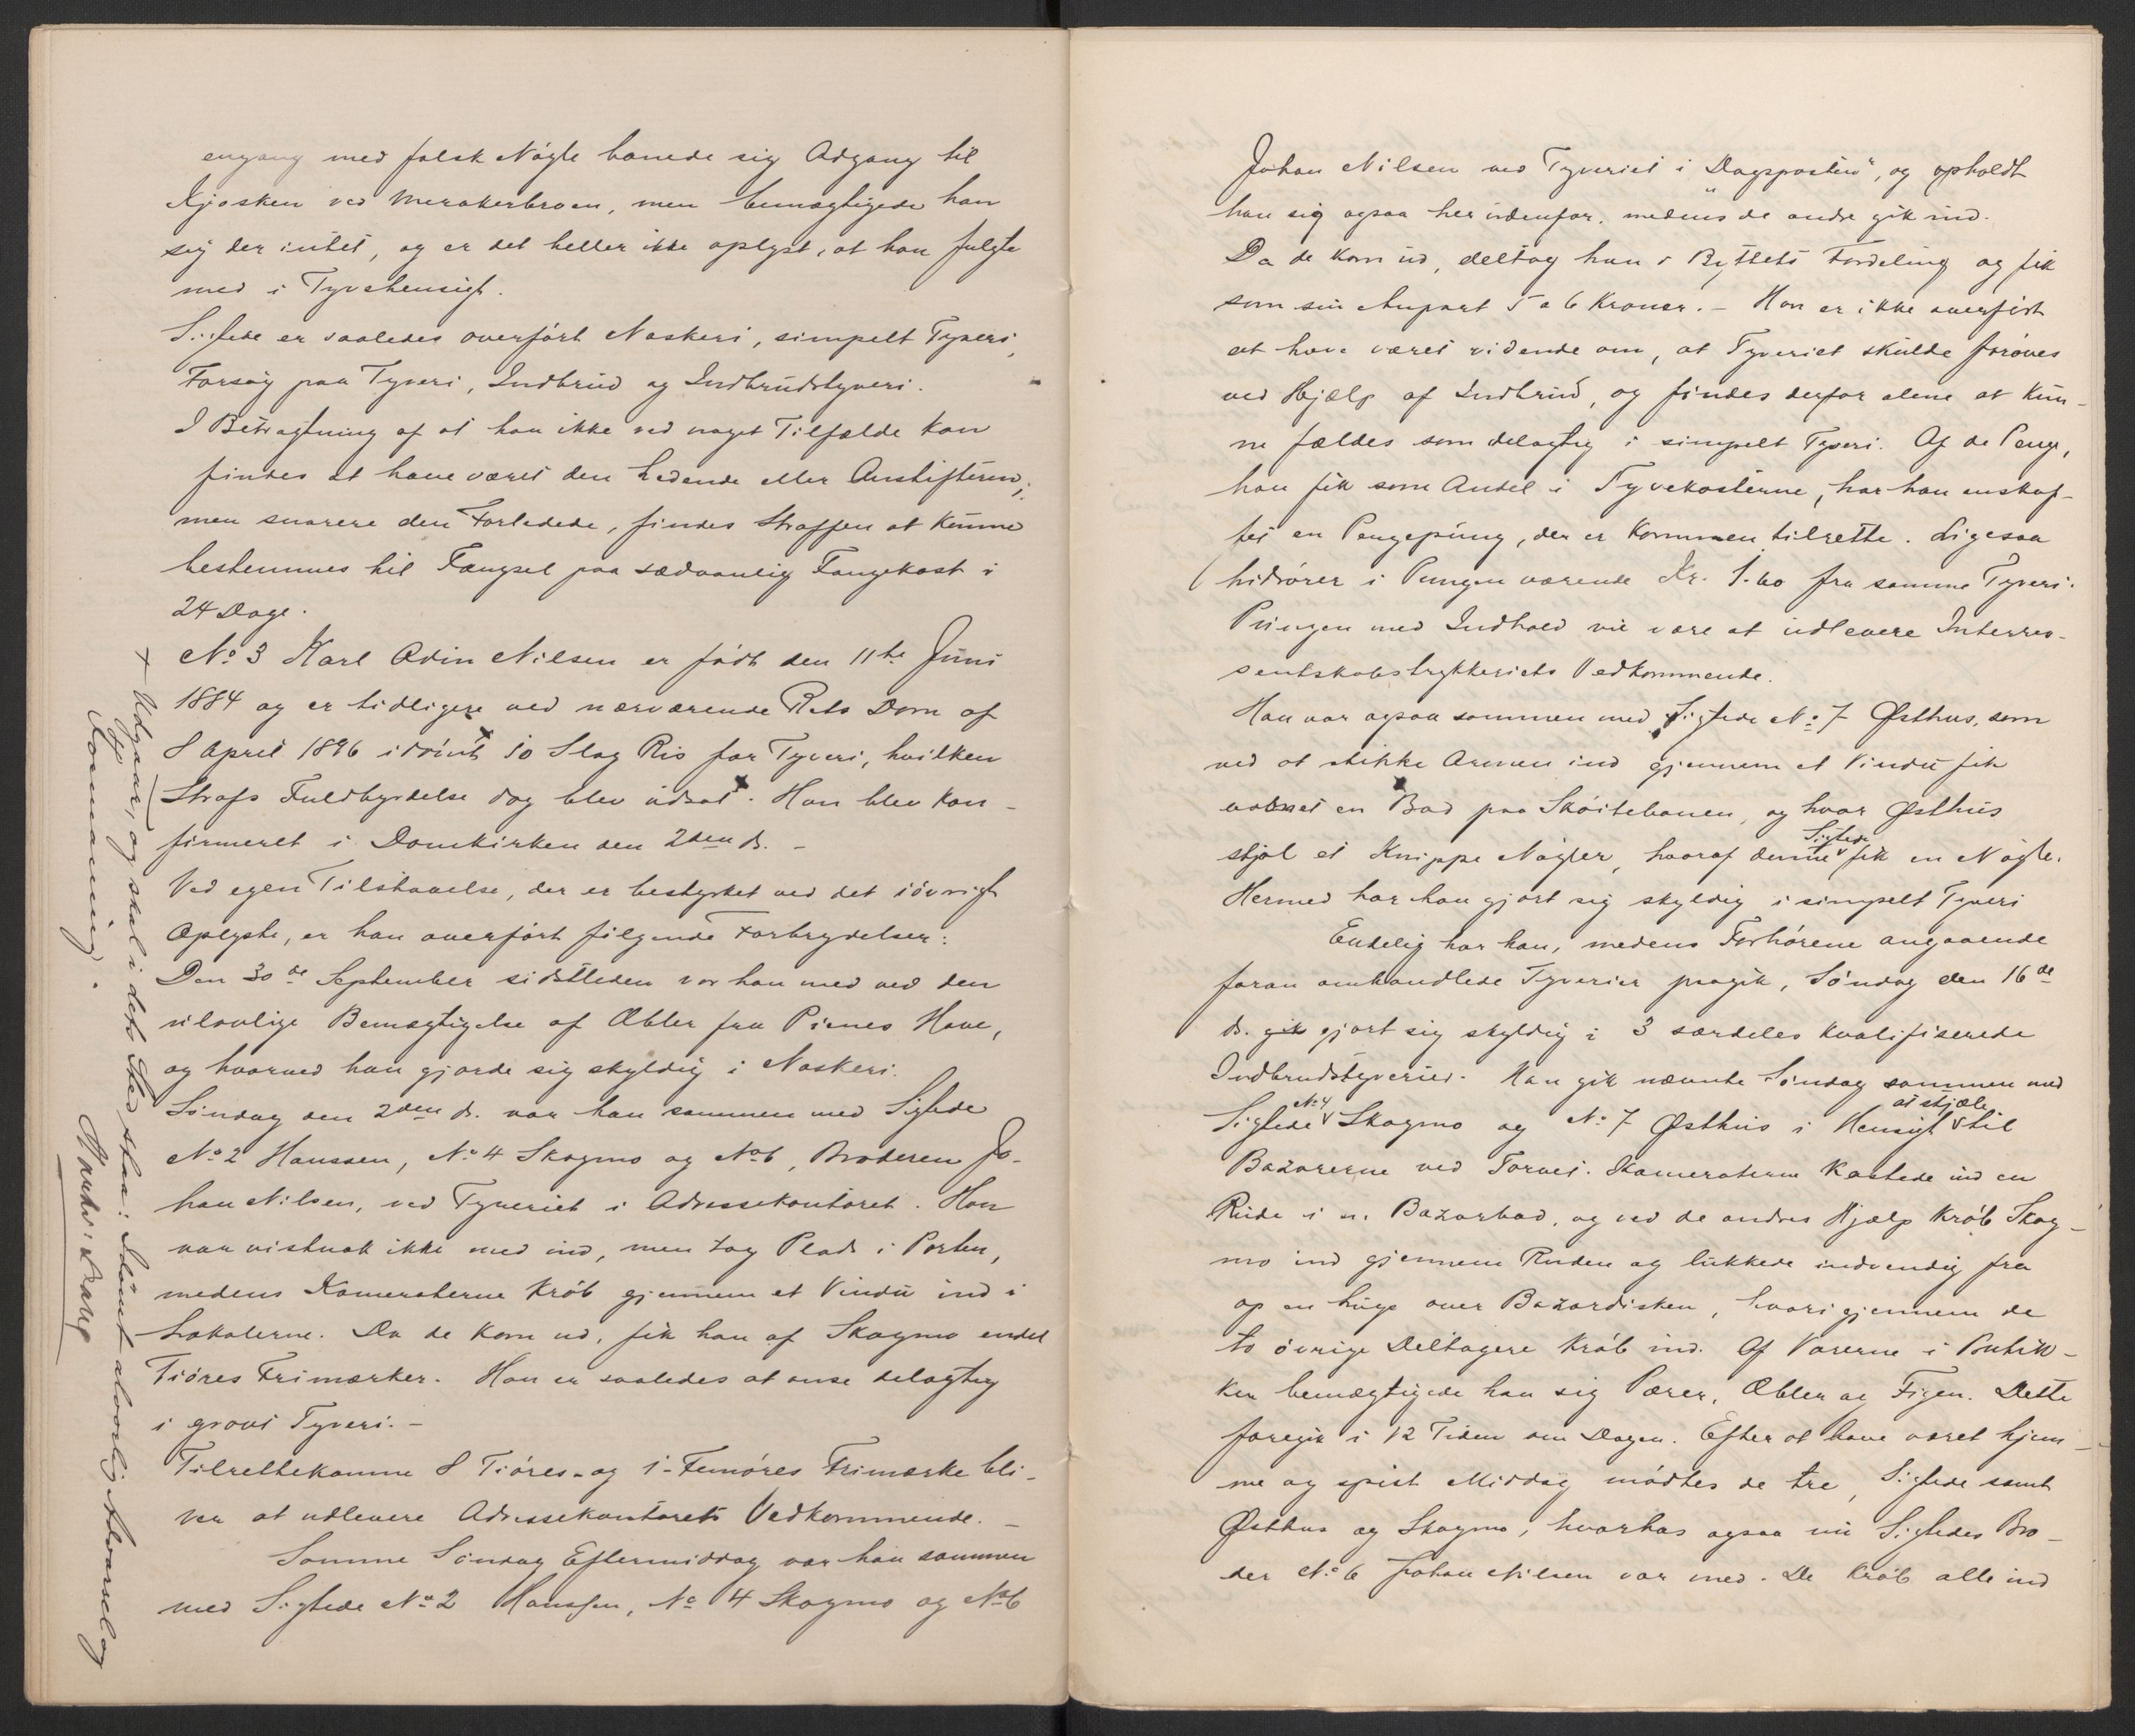 engang med falsk Nøgle banede sig Adgang til
Kjosken ved Merakerbroen, men bemægtigede han
sig der intet, og er det heller ikke oplyst, at han fulgte
med i Tyvehensigt.
Sigtede er saaledes overført Naskeri, simpelt Tyveri,
Forsøg paa Tyveri, Indbrud og Indbrudstyveri.
I Betragtning af at han ikke ved noget Tilfælde kan
findes at have været den Ledende eller Anstifteren,
men snarere den Forledede, findes Straffen at kunne
bestemmes til Fængsel paa sædvanlig Fangekost i
24 Dage.
No 3 Karl Odin Nilsen er født den 11te Juni
1884 og er tidligere ved nærværende Rets Dom af
8 April 1896 idømt 10 Slag Ris for Tyveri, hvilken
Strafs Fuldbyrdelse dog blev udsat. Han blev kon-
firmeret i Domkirken den 2den ds. -
Ved egen Tilstaaelse, der er bestyrket ved det iøvrigt
Oplyste, er han overført følgende Forbrydelser:
Den 30de September sidstleden var han med ved den
ulovlige Bemægtigelse af Æbler fra Pienes Have,
og hvorved han gjorde sig skyldig i Naskeri.
Søndag den 2den ds. var han sammen med Sigtede
No 2 Hanssen, No 4 Skogmo og No 6, Broderen Jo-
han Nilsen, ved Tyveriet i Adressekontoret. Han
var vistnok ikke med ind, men tog Plads i Porten,
medens Kameraterne krøb gjennem et Vindu ind i
Lokalerne. Da de kom ud, fik han af Skogmo endel
Tiøres Frimærker. Han er saaledes at anse delagtig
i grovt Tyveri. -
Tilrettekomne 8 Tiøres- og 1 Femøres Frimærke bli-
ver at udlevere Adressekontorets Vedkommende. -
Samme Søndag Eftermiddag var han sammen
med Sigtede No 2 Hanssen, No 4 Skogmo og No 6
x Udgaar, og skal i dets Sted staa: Idømt alvorlig Advarsel og
Formaning.
Johan Nilsen ved Tyveriet i "Dagsposten", og opholdt
han sig ogsaa her udenfor, medens de andre gik ind.
Da de kom ud, deltog han i Byttets Fordeling og fik
som sin Anpart 5 a 6 Kroner. - Han er ikke overført
at have været vidende om, at Tyveriet skulde forøves
ved Hjælp af Indbrud, og findes derfor alene at kun-
ne fældes som delagtig i simpelt Tyveri. Af de Penge,
han fik som Andel i Tyvekosterne, har han anskaf-
fet en Pengepung, der er kommen tilrette. Ligesaa
hidrører i Pungen værende Kr. 1.60 fra samme Tyveri.
Pungen med Indhold vil være at udlevere Interes-
sentskabstrykkeriets Vedkommende.
Han var ogsaa sammen med Sigtede No 7 Østhus, som
ved at stikke Armen ind gjennem et Vindu fik
aabnet en Bod paa Skøitebanen, og hvor Østhus
stjal et Knippe Nøgler, hvoraf denne Sigtede fik en Nøgle.
Hermed har han gjort sig skyldig i simpelt Tyveri
Endelig har han, medens Forhørene angaaende
foran omhandlede Tyverier paagik, Søndag den 16de
ds. gik gjort sig skyldig i 3 særdeles kvalifiserede
Indbrudstyverier. Han gik nævnte Søndag sammen med
Sigtede No 4 Skogmo og No 7 Østhus i Hensigt at stjæle til
Bazarerne ved Torvet. Kameraterne kastede ind en
Rude i en Bazarbod, og ved de andres Hjælp krøb Skog-
mo ind gjennem Ruden og lukkede indvendig fra
op en Luge over Bazardisken, hvorigjennem de
to øvrige Deltagere krøb ind. Af Varerne i Butik-
ken bemægtigede han sig Pærer, Æbler og Figen. Dette
foregik i 12 Tiden om Dagen. Efter at have været hjem-
me og spist Middag mødtes de tre, Sigtede samt
Østhus og Skogmo, hvorhos ogsaa nu Sigtedes Bro-
der No 6 Johan Nilsen var med. De krøb alle ind